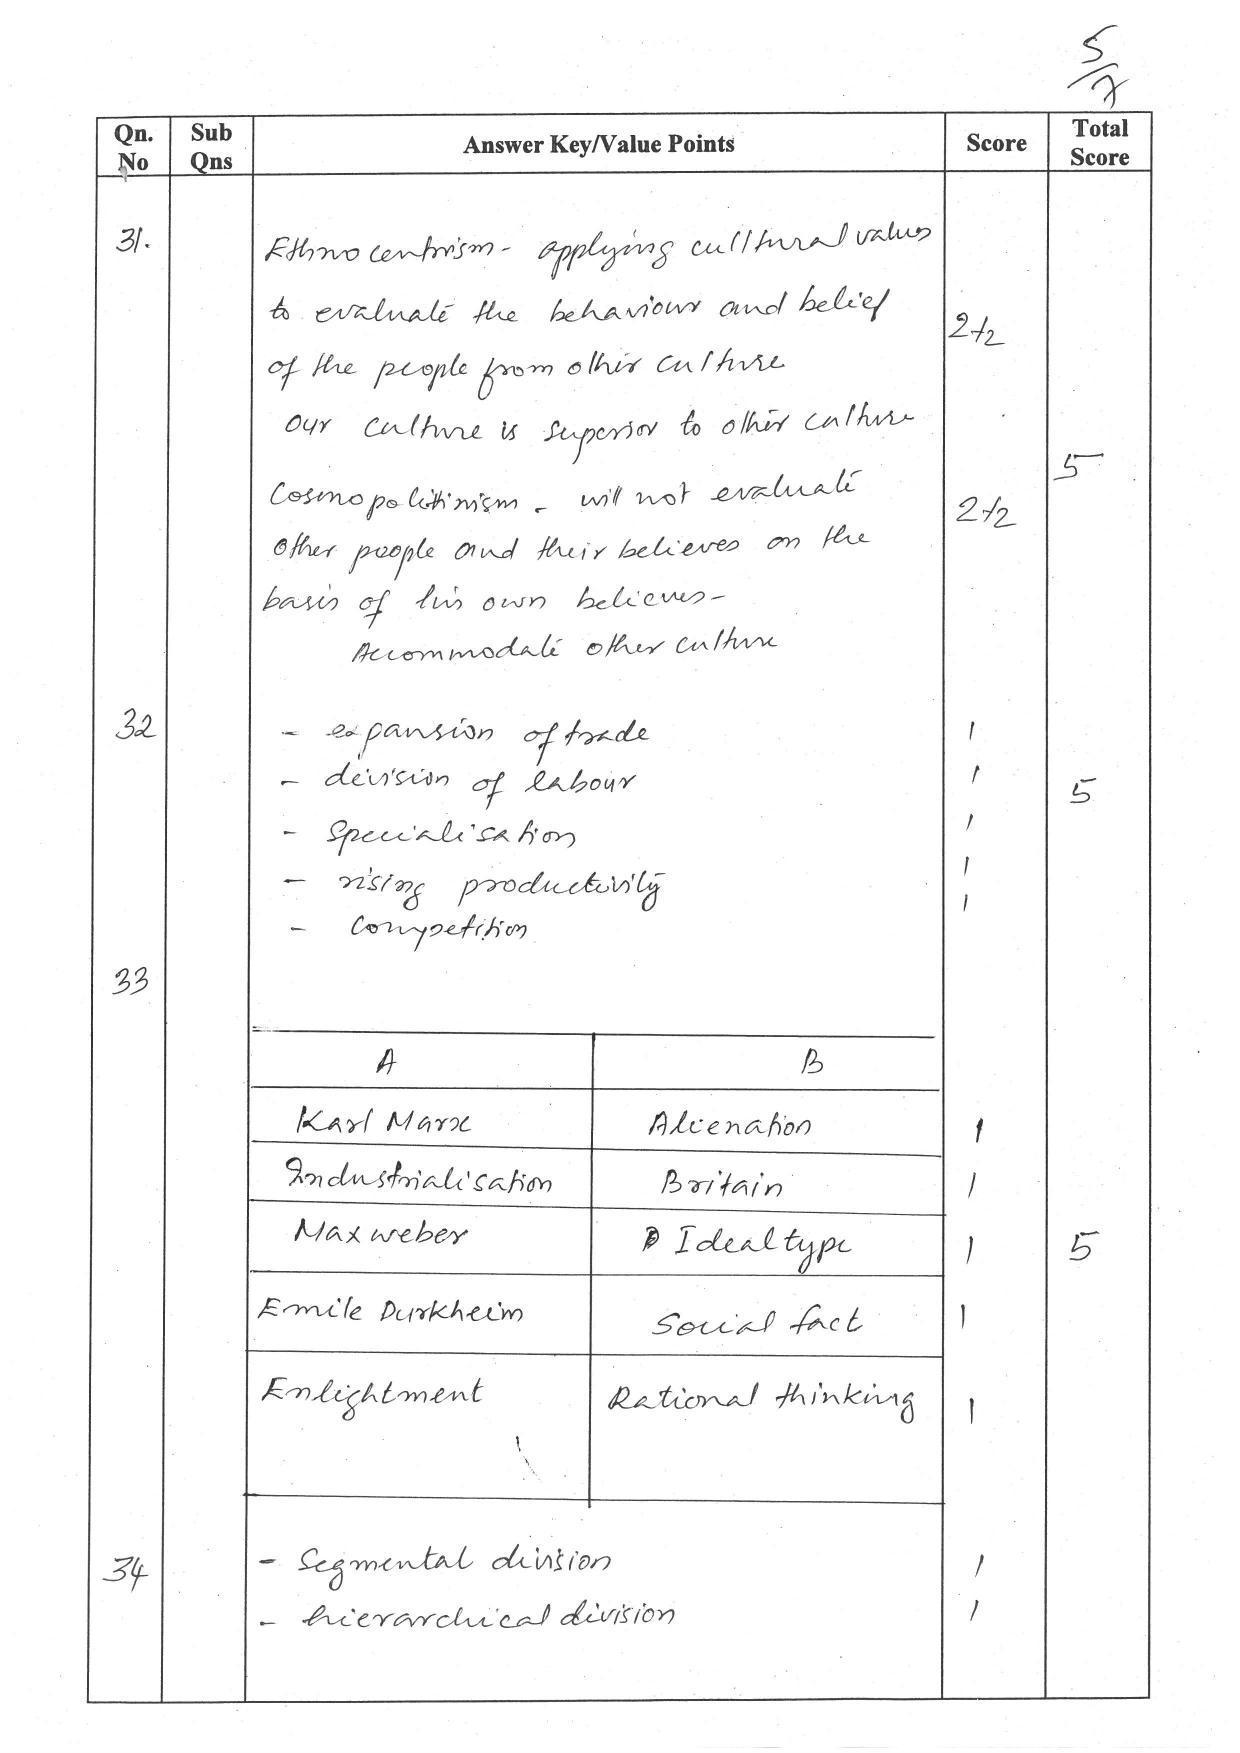 5/7
Qn. No Sub Qns Answer Key/Value Points Score Total Score
31. Ethnocentrism - applying culltural values
to evaluate the behaviour and belief 2 1/2
of the people from other culture
Our culture is superior to other culture
5
Cosmopolitinism - will not evaluate 2 1/2
other people and their believes on the
basis of his own believes-
Accommodate other culture
32 - expansion of trade 1
- division of labour 1 5
- specialisation 1
- rising productivity 1
- Competition 1
33
A B
Karl Marx Alienation 1
Industrialisation Britain 1
Max weber Ideal type 1 5
Emile Durkheim Social fact 1
Enlightment Rational thinking 1
34 - Segmental division 1
- hierarchical division 1